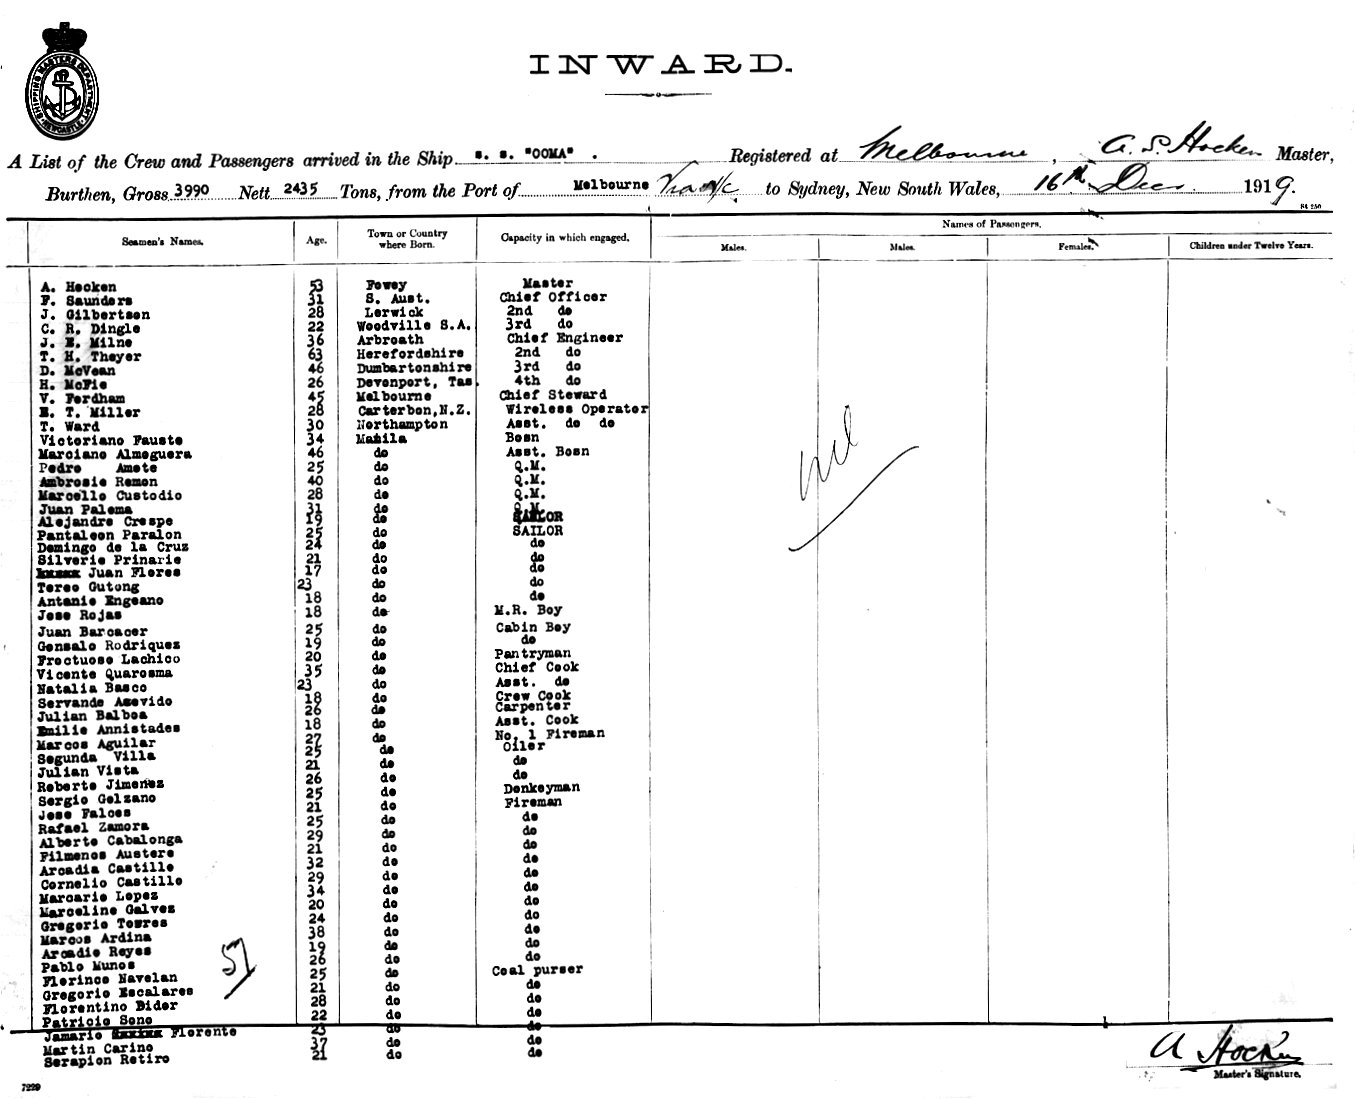 SHIPPING MASTERS DEPARTMENT NEWCASTLE
INWARD.
A List of the Crew and Passengers arrived in the Ship s. s. "OOMA" . Registered at Melbourne, A. S. Hocken Master,
Burthen, Gross 3990 Nett 2435 Tons, from the Port of Melbourne Via N/c to Sydney, New South Wales, 16th Dec 1919.
St 250
Seamen's Names. Age. Town or Country where Born. Capacity in which engaged. Names of Passengers.
Males. Males. Females. Children under Twelve Years.
A. Hocken 53 Fowey Master
F. Saunders 31 S. Aust. Chief Officer
J. Gilbertson 28 Lerwick 2nd do
C. R. Dingle 22 Woodville S.A. 3rd do
J. E. Milne 36 Arbroath Chief Engineer
T. H. Thayer 63 Herefordshire 2nd do
D. McVean 46 Dumbartonshire 3rd do
H. McFie 26 Devonport, Tas. 4th do
V. Fordham 45 Melbourne Chief Steward
E. T. Miller 28 Carterbon,N.Z. Wireless Operator
T. Ward 30 Northampton Asst. do do
Victoriano Fausto 34 Manila Bosn
Marciano Almoguera 46 do Asst. Bosn
Pedro Amote 25 do Q.M.
Ambrosio Remon 40 do Q.M.
Marcello Custodio 28 do Q.M.
Juan Paloma 31 do Q.M.
Alejandro Crespo 19 do SAILOR
Pantaleon Paralon 25 do SAILOR
Domingo de la Cruz 24 do do
Silverio Prinario 21 do do
Juan Flores 17 do do
Tereo Gutong 23 do do
Antanio Engeano 18 do do
Jose Rojas 18 do M.R. Boy
Juan Barcacer 25 do Cabin Boy
Gonsalo Rodriquez 19 do do
Froctuoso Lachico 20 do Pantryman
Vicente Quarosma 35 do Chief Cook
Natalia Basco 23 do Asst. do
Servando Asevido 18 do Crew Cook
Julian Balboa 26 do Carpenter
Emilio Annistades 18 do Asst. Cook
Marcos Aguilar 27 do No. 1 Fireman
Segunda Villa 25 do Oiler
Julian Vista 21 do do
Roberto Jimenez 26 do do
Sergio Golzano 25 do Donkeyman
Jose Falces 21 do Fireman
Rafael Zamora 25 do do
Alberto Cabalonga 29 do do
Filmenos Austero 21 do do
Arcadia Castillo 32 do do
Cornelio Castillo 29 do do
Marcario Lopez 34 do do
Marcelino Galvez 20 do do
Gregorio Torres 24 do do
Marcos Ardina 38 do do
Arcadio Reyes 19 do do
Pablo Munos 26 do do
Florince Navelan 25 do Coal purser
Gregorio Escalares 21 do do
Florentino Bider 28 do do
Patricio Sono 22 do do
Jamario Florente 23 do do
Martin Carino 37 do do
Serapion Retiro 21 do do
nil
57
A Hocken
Master's Signature.
7229